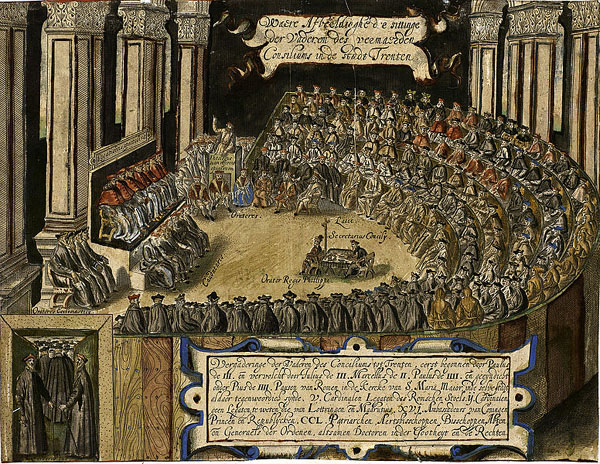 Waere Afteeldinghe d'e sittinge
der Vaderen des vermaerden
Consiliums in de Stadt Trenten
Oratores.
Secretarius Concilÿ
Orator Regis Philippi
Vergaderinge der Vaderen des Consiliums tot Trenten, eerst begonnen door Paulus
de III. en vervolcht door Iulius de III. Marcellus de II. Paulus IIII. en
onder Pius de IIII. Pausen van Romen, in de Kercke van S. Maria Maior,
aldaer tegenwoordich synde. V. Cardinalen Legaten des Roomschen Stoels. II. Cardinalen
geen Legaten te weten die van Lottringen en Madrutius, XVI. Ambassadeurs van Coningen
Princen en Republycken, CCL. Patriarchen Aertsbisschoppen, Bisschoppen, Abten
en Generaels der Ordenen, altsamen Doctoren in der Gootheyt en de Rechten.